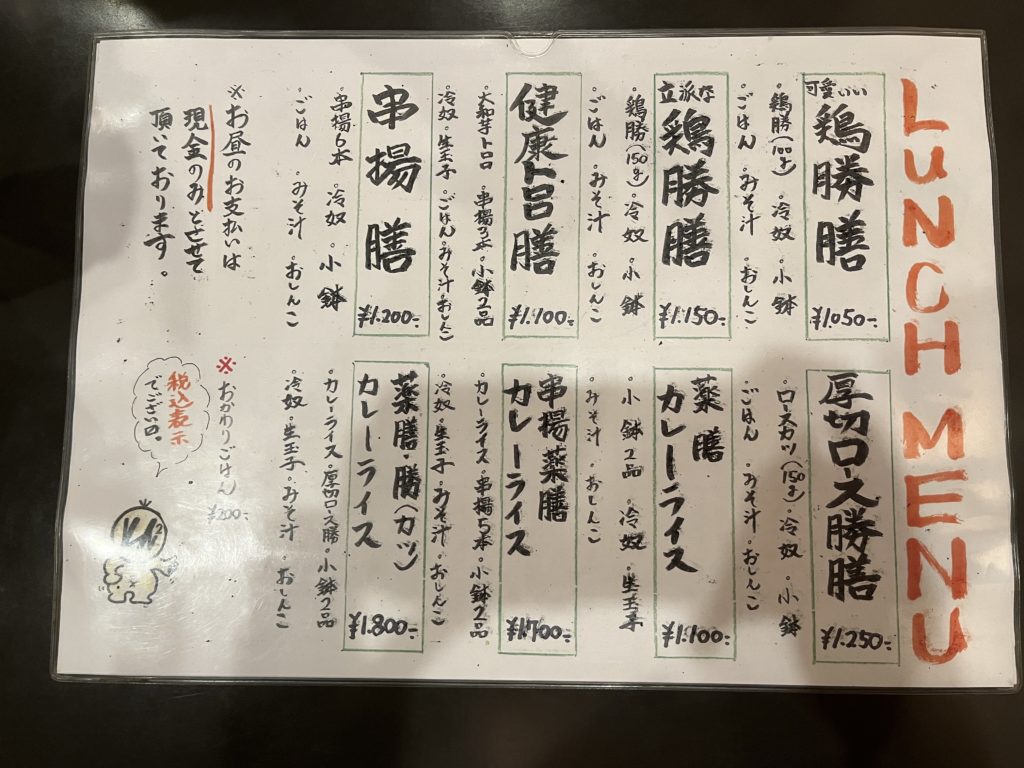 LUNCH MENU
可愛いい
鶏勝膳
¥1.050-
・鶏勝(100g)・冷奴・小鉢
・ごはん・みそ汁・おしんこ
立派な
鶏勝膳
¥1.150-
・鶏勝(150g)・冷奴・小鉢
・ごはん・みそ汁・おしんこ
健康トロロ膳
¥1.100-
・大和芋トロロ・串揚3本・小鉢2品
・冷奴・生玉子・ごはん・みそ汁・おしんこ
串揚膳
¥1.200-
・串揚6本・冷奴・小鉢
・ごはん・みそ汁・おしんこ
※お昼のお支払いは
現金のみとさせて
頂いております。
厚切ロース勝膳
¥1.250-
・ロースカツ(150g)・冷奴・小鉢
・ごはん・みそ汁・おしんこ
薬膳
カレーライス
¥1.100-
・小鉢2品・冷奴・生玉子
・みそ汁・おしんこ
串揚薬膳
カレーライス
・カレーライス・串揚5本・小鉢2品
・冷奴・生玉子・みそ汁・おしんこ
薬膳・勝(カツ)
カレーライス
¥1.800-
・カレーライス・厚切ロース勝・小鉢2品
・冷奴・生玉子・みそ汁・おしんこ
※おかわりごはん
¥200-
税込表示
でございます。